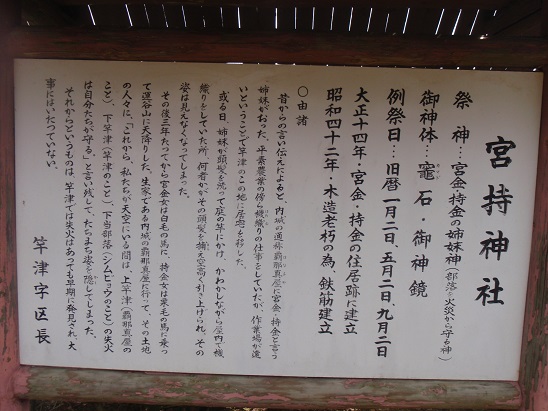 宮持神社
祭　神…宮金・持金の姉妹神(部落を火災から守る神)
御神体…竈石・御神鏡
例祭日…旧暦一月二日、五月二日、九月二日
大正十四年・宮金・持金の住居跡に建立
昭和四十二年・木造老朽の為、鉄筋建立
〇由諸
昔からの言い伝えによると、内城の通称覇那真屋に宮金・持金と言う
姉妹がおった。平素農業の傍ら機織りの仕事をしていたが、作業場が遠
いということで竿津のこの地に居宅を移した。
或る日、姉妹が頭髪を洗って庭の竿にかけ、かわかしながら屋内で機
織りをしていた所、何者かがその頭髪を捕え空高く引き上げられ、その
姿は見えなくなってしまった。
その後三年たってから宮金女は白毛の馬に、持金女は栗毛の馬に乗っ
て運谷山に天降りした。生家である内城の覇那真屋に行って、その土地
の人々に、「これから、私たちが天空にいる間は、上竿津(覇那真屋の
こと)、下竿津(竿津のこと)、下当部落(シムヒョウのこと)の失火
は自分たちが守る」と言い残して、たちまち姿を隠してしまった。
それからというものは、竿津では失火はあっても早期に発見され、大
事にはいたっていない。
竿津字区長